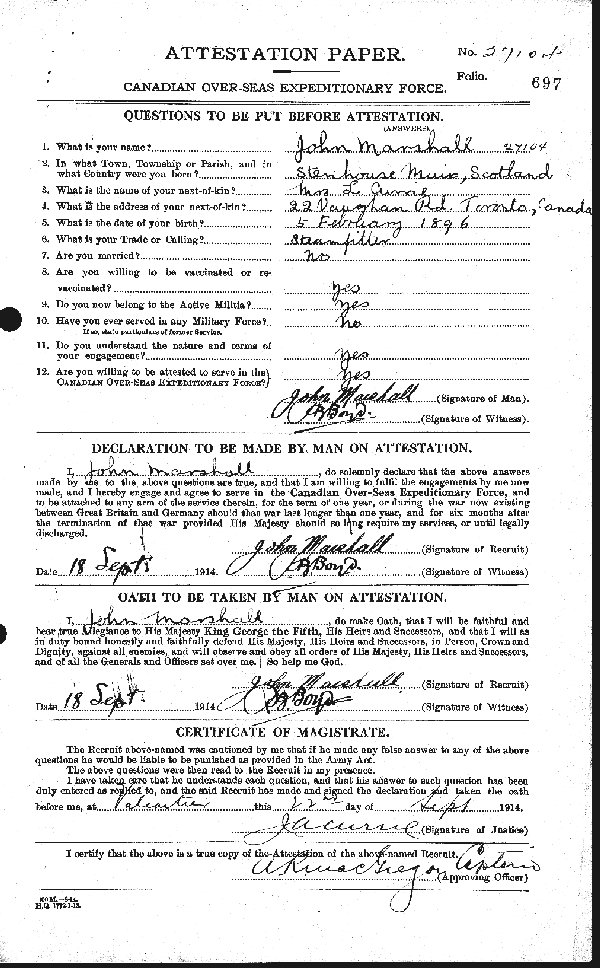 ATTESTATION PAPER.
No. 27104
Folio.
697
CANADIAN OVER-SEAS EXPEDITIONARY FORCE.
QUESTIONS TO BE PUT BEFORE ATTESTATION.
(ANSWERS).
1. What is your name? John Marshall 27104
2. In what Town, Township or Parish, and in
what Country were you born? Stenhouse Muir, Scotland
3. What is the name of your next-of-kin? Mrs. L. Currie
4. What is the address of your next-of-kin? 22 Vaughan Rd. Toronto, Canada
5. What is the date of your birth? 5 February 1896
6. What is your Trade or Calling? Steamfitter
7. Are you married? no
8. Are you willing to be vaccinated or re-
vaccinated? yes
9. Do you now belong to the Active Militia? yes
10. Have you ever served in any Military Force? no
If so, state particulars of former Service.
11. Do you understand the nature and terms of
your engagement? yes
12. Are you willing to be attested to serve in the
CANADIAN OVER-SEAS EXPEDITIONARY FORCE? yes
John Marshall (Signature of Man).
Boyd. (Signature of Witness).
DECLARATION TO BE MADE BY MAN ON ATTESTATION.
I, John Marshall, do solemnly declare that the above answers
made by me to the above questions are true, and that I am willing to fulfil the engagements by me now
made, and I hereby engage and agree to serve in the Canadian Over-Seas Expeditionary Force, and
to be attached to any arm of the service therein, for the term of one year, or during the war now existing
between Great Britain and Germany should that war last longer than one year, and for six months after
the termination of that war provided His Majesty should so long require my services, or until legally
discharged.
John Marshall (Signature of Recruit)
Date 18 Sept 1914. Boyd. (Signature of Witness)
OATH TO BE TAKEN BY MAN ON ATTESTATION.
I, John Marshall, do make Oath, that I will be faithful and
bear true Allegiance to His Majesty King George the Fifth, His Heirs and Successors, and that I will as
in duty bound honestly and faithfully defend His Majesty, His Heirs and Successors, in Person, Crown and
Dignity, against all enemies, and will observe and obey all orders of His Majesty, His Heirs and Successors,
and of all the Generals and Officers set over me. So help me God.
John Marshall (Signature of Recruit)
Date 18 Sept. 1914 Boyd (Signature of Witness)
CERTIFICATE OF MAGISTRATE.
The Recruit above-named was cautioned by me that if he made any false answer to any of the above
questions he would be liable to be punished as provided in the Army Act.
The above questions were then read to the Recruit in my presence.
I have taken care that he understands each question, and that his answer to each question has been
duly entered as replied to, and the said Recruit has made and signed the declaration and taken the oath
before me, at Valcartier this 22nd day of Sept 1914.
(Signature of Justice)
I certify that the above is a true copy of the Attestation of the above-named Recruit.
MacGregor Captain
(Approving Officer)
H.Q. 1772-1-13.